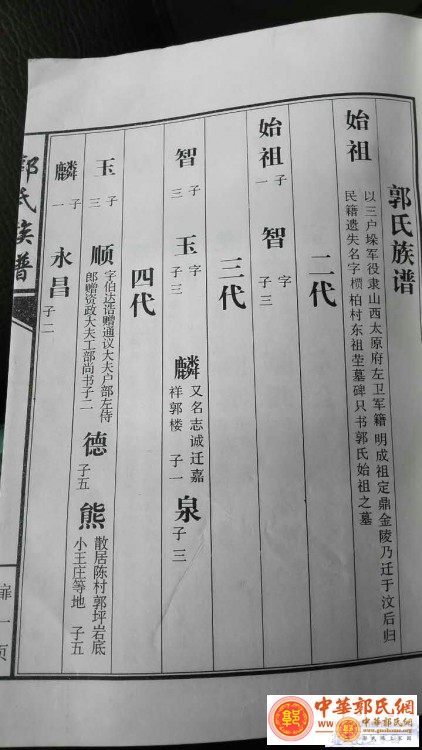 郭氏族谱
始祖 以三户垛军役隶山西太原府左卫军籍 明成祖定鼎金陵乃迁于汶后归
民籍遗失名字槚柏村东祖茔墓碑只书郭氏始祖之墓
二代
始祖 子一 智 字 子三
三代
智 子三 玉 字 子三 麟 又名志诚迁嘉
祥郭楼 子一 泉 子三
四代
玉 子三 顺 字伯达诰赠通议大夫户部左侍
郎赠资政大夫工部尚书子二 德 子五 熊 散居陈村郭坪岩底
小王庄等地 子五
麟 子一 永昌 子二
郭氏族谱
扉一页
中華郭氏網
www.guohome.org